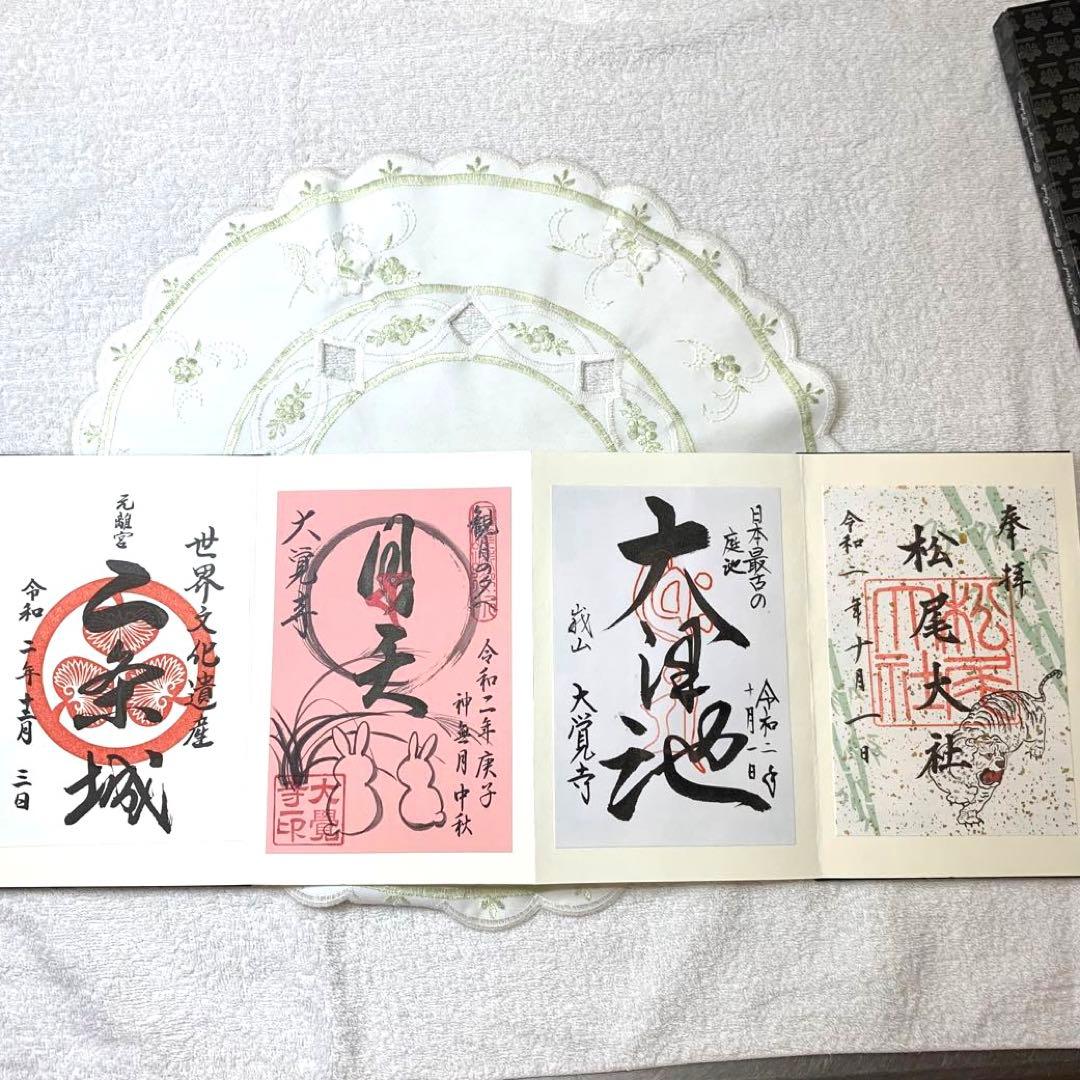 奉拝
松尾大社
松尾大社
令和二年十月一日
日本最古の
庭池
大沢池
令和二年
十月一日
大覚寺
観月の夕べ
月天
令和二年庚子
神無月 中秋
大覚寺
大覺寺印
世界文化遺産
元離宮
二条城
令和二年十二月三日